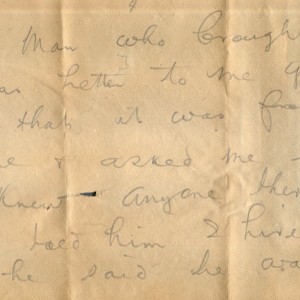 Man who brough
letter to me
that it was fr
e & asked me
knew anyone ther
told him I hire
he said he